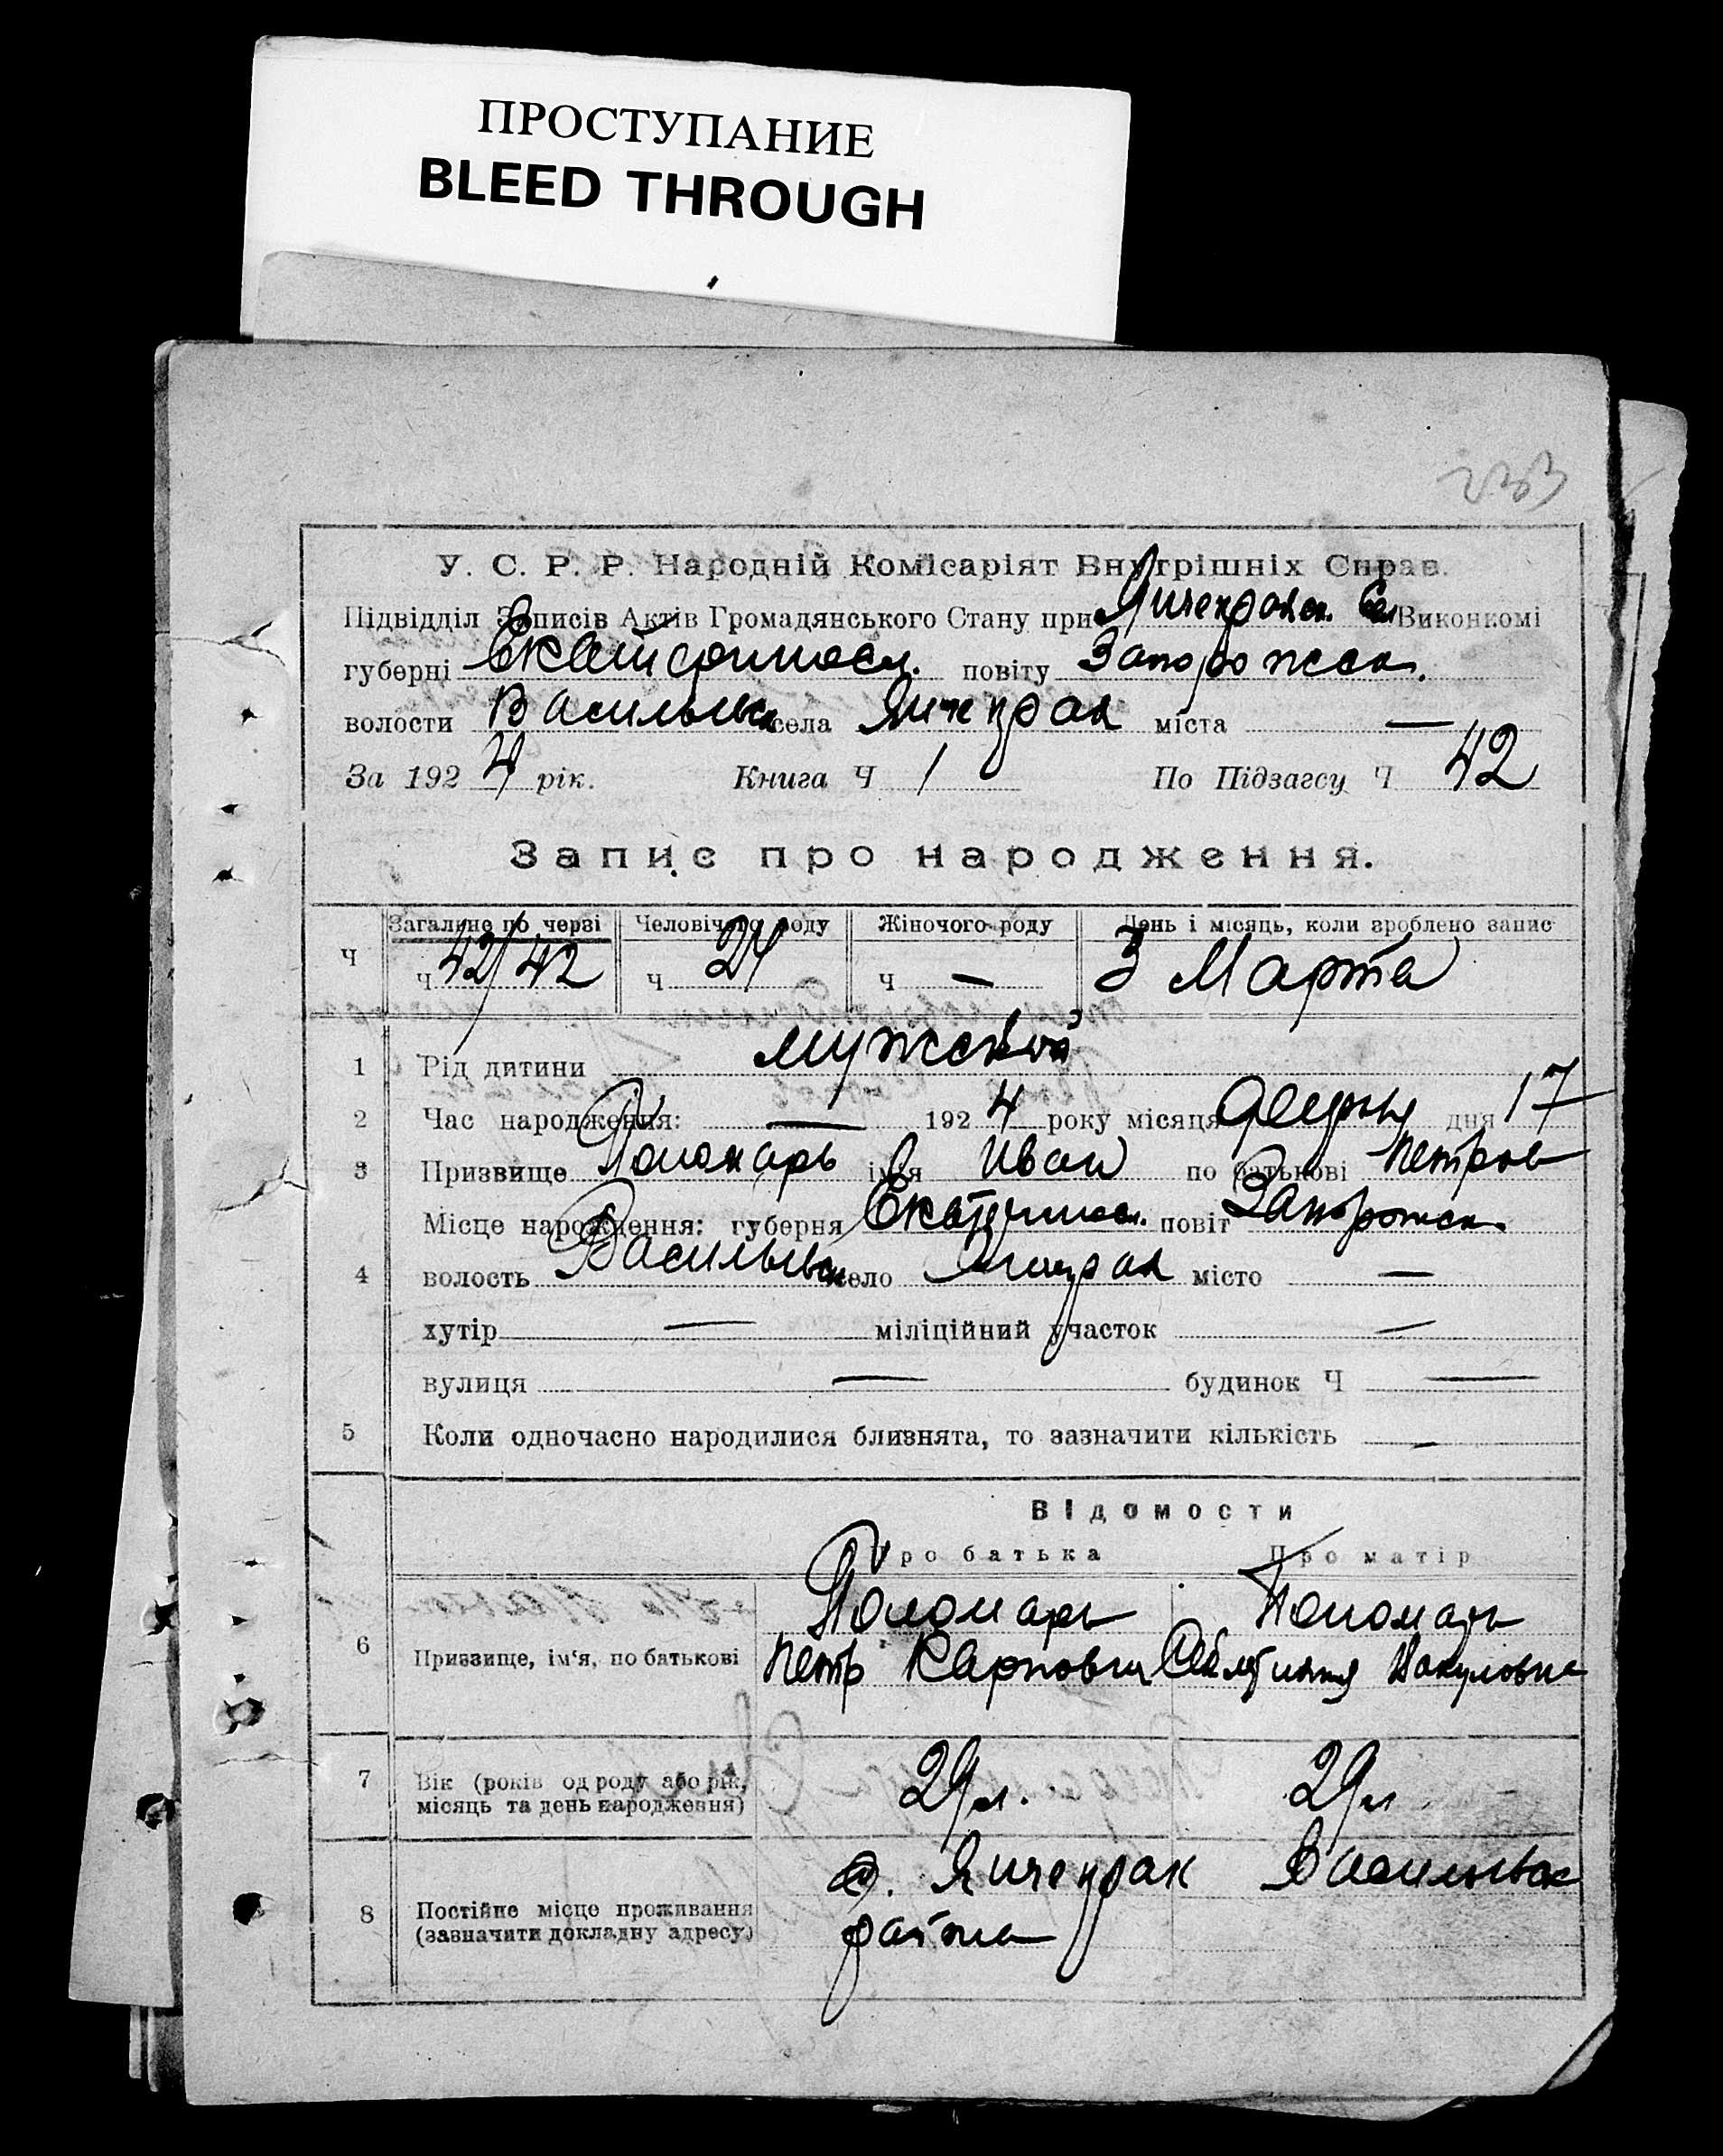 ПРОСТУПАНИЕ
BLEED THROUGH
233
У. С. Р. Р. Народній Комісаріят Внутрішніх Справ.
Підвідділ Записів Актів Громадянського Стану при Янчекракск. Сел Виконкомі
губерні Екатериносл. повіту Запорожск.
волости Васильевск села Янчекрак міста —
За 1924 рік. Книга Ч 1 По Підзагсу Ч 42
Запис про народження.
Загальне по черзі Человічого роду Жіночого роду День і місяць, коли зроблено запис
Ч Ч 42/42 Ч 24 Ч — 3 Марта
1 Рід дитини мужской
2 Час народження: — 1924 року місяця дня 17
3 Призвище Пономарь ім'я Иван по батькові Петров
Місце народження: губерня Екатериносл. повіт Запорожск.
4 волость Васильевск село Янчекрак місто —
хутір — міліційний участок —
вулиця — будинок Ч —
5 Коли одночасно народилися близнята, то зазначити кількість —
Відомости
Про батька Про матір
Пономарь Пономарь
6 Призвище, ім'я, по батькові Петр Карпович Вакуловна
7 Вік (років од роду або рік, місяць та день народження) 29 л. 29 л
8 Постійне місце проживання (зазначити докладну адресу) с. Янчекрак Васильевск
района